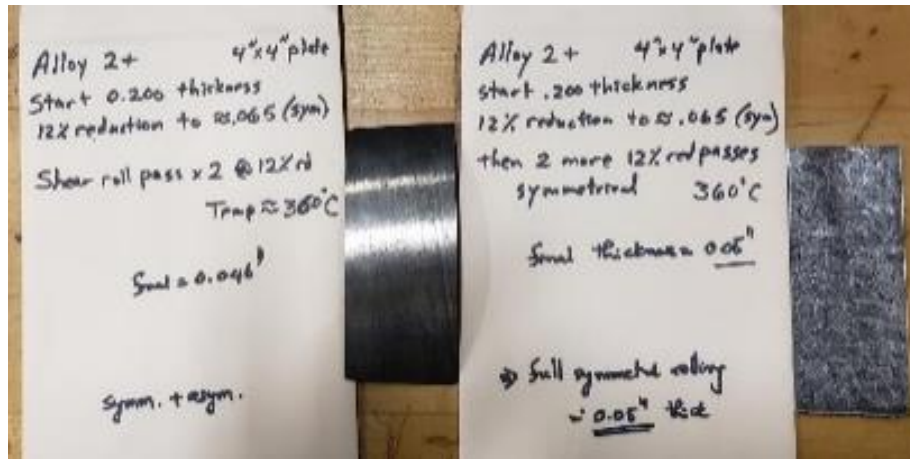 Alloy 2+ 4"x4" plate
Start 0.200 thickness
12% reduction to ≈.065 (sym)
Shear roll pass x 2 @ 12% rd
Temp ≈ 360°C
final = 0.046"
symm. + asym.
Alloy 2+ 4"x4" plate
start .200 thickness
12% reduction to ≈.065 (sym)
then 2 more 12% red passes
symmetrical 360°C
final thickness = 0.05"
⇒ full symmetrl rolling
= 0.05" thick